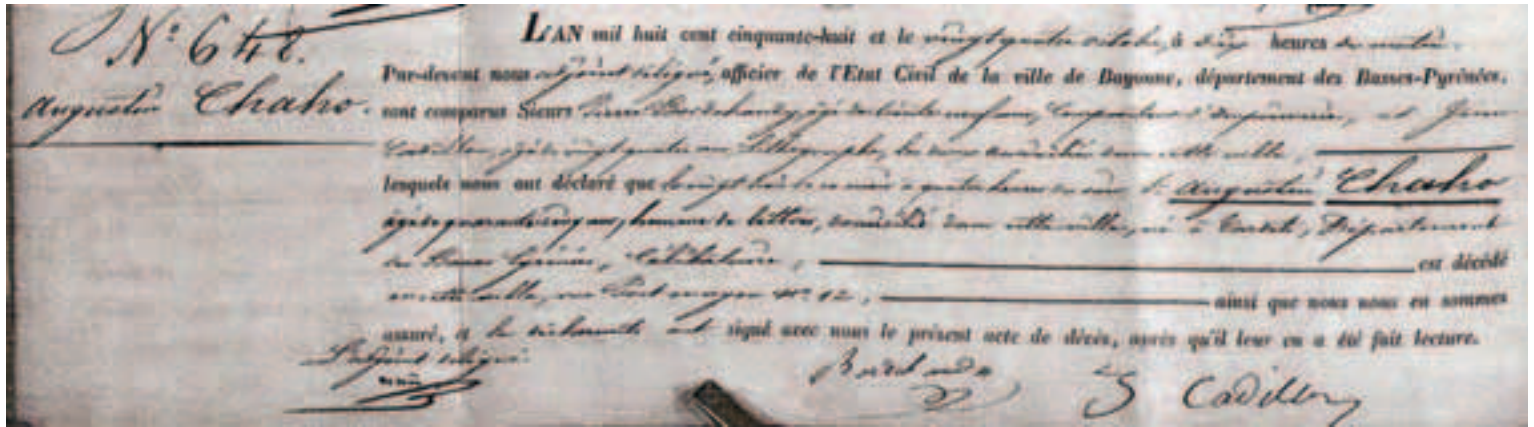 N° 648.
Augustin Chaho.
L'AN mil huit cent cinquante-huit et le vingt quatre octobre, à dix heures du matin.
Par-devant nous adjoint délégué, officier de l'Etat Civil de la ville de Bayonne, département des Basses-Pyrénées,
sont comparus Sieurs Pierre âgé de trente neuf ans, d'imprimerie, et Jean
Cadillon, âgé de vingt quatre ans Lithographe, les deux domiciliés dans cette ville,
lesquels nous ont déclaré que le vingt trois de ce mois à quatre heures du soir le Sr Augustin Chaho
âgé de quarante cinq ans, homme de lettres, domicilié dans cette ville, né à Tardets, Département
des Basses Pyrénées, Célibataire, est décédé
en cette ville, rue Port neuf n° 12, ainsi que nous nous en sommes
assuré, et les déclarants ont signé avec nous le présent acte de décès, après qu'il leur en a été fait lecture.
L'adjoint délégué
Cadillon